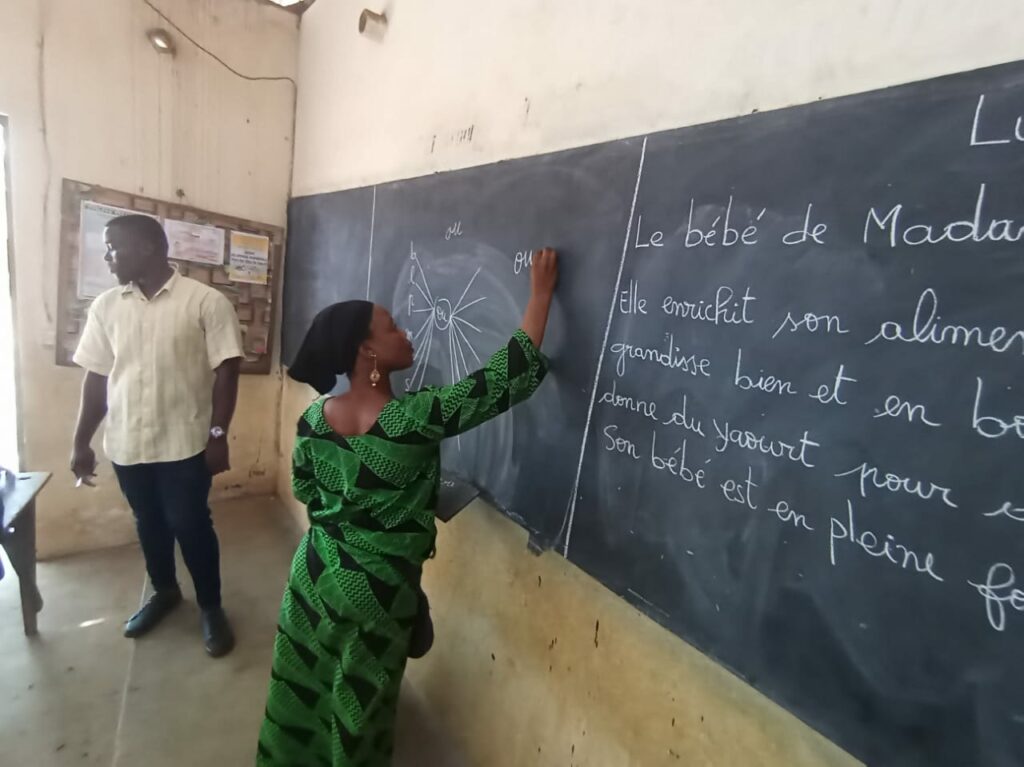 ou
ou
b
l
f
ou
Lu
Le bébé de Mada
Elle enrichit son alimen
grandisse bien et en bo
donne du yaourt pour
Son bébé est en pleine fo